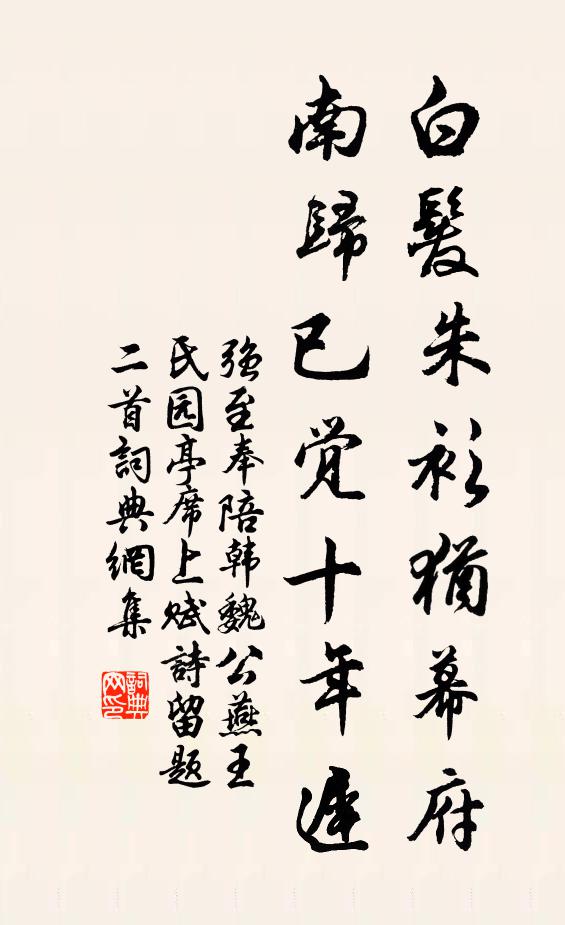 白髮朱衫猶幕府
南歸已觉十年遲
強至奉陪韩魏公燕王
氏园亭席上赋詩留题
二首詞典網集
詞典网印